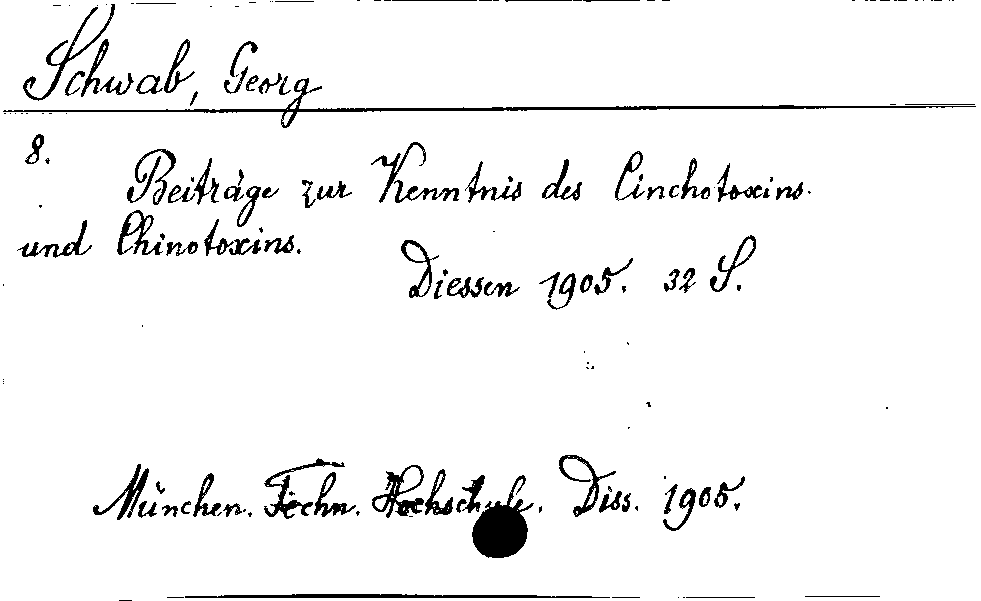 Schwab, Georg
8.
Beiträge zur Kenntnis des Cinchotoxins
und Chinotoxins.
Diessen 1905. 32 S.
München. Techn. Hochschule. Diss. 1905.